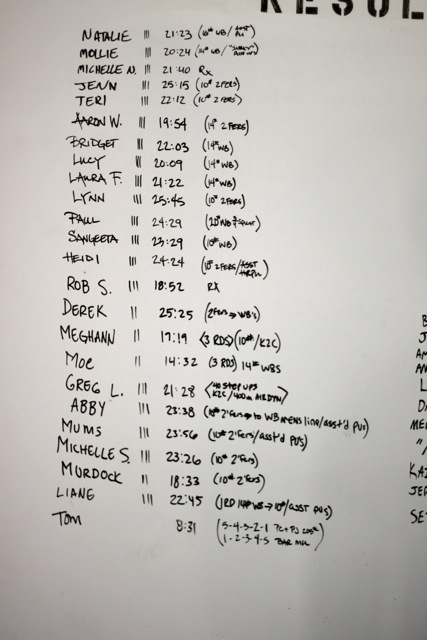 RESUL
NATALIE ||| 21:23 (10# WB/
MOLLIE ||| 20:24
MICHELLE N. ||| 21:40 Rx
JENN ||| 25:15 (10# 2FERS)
TERI ||| 22:12 (10# 2FERS)
AARON W. ||| 19:54 (14# 2FERS)
BRIDGET ||| 22:03 (14# WB)
LUCY ||| 20:09 (14# WB)
LAURA F. ||| 21:22 (14# WB)
LYNN ||| 25:45 (10# 2FERS)
PAUL ||| 24:29
SANGEETA ||| 25:29 (10# WB)
HEIDI ||| 24:24 (10# 2FERS/ASST
ROB S. ||| 18:52 RX
DEREK || 25:25 (2Fers→WB's)
MEGHANN || 17:19 (3 RDS)(10#/K2C)
MOE || 14:32 (3 RDS) 14# WBS
GREG L. ||| 21:28 <40 STEP UPS
K2C/400m
ABBY ||| 23:38 (10# 2'Fers→to WB MENS line/asst'd PUs)
MUMS ||| 23:56 (10# 2'Fers/asst'd PUS)
MICHELLE S. ||| 23:26 (10# 2'Fers)
MURDOCK || 18:33 (10# 2'Fers)
LIANE ||| 22:45 (1RD 14# WB→10#/ASST PUS)
TOM 8:31 (5-4-3-2-1
1-2-3-4-5 BAR MU